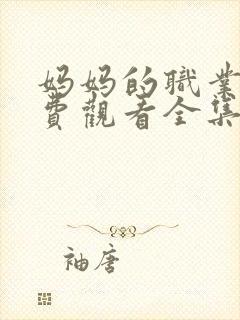 妈妈的職業
費觀看全集
袖唐